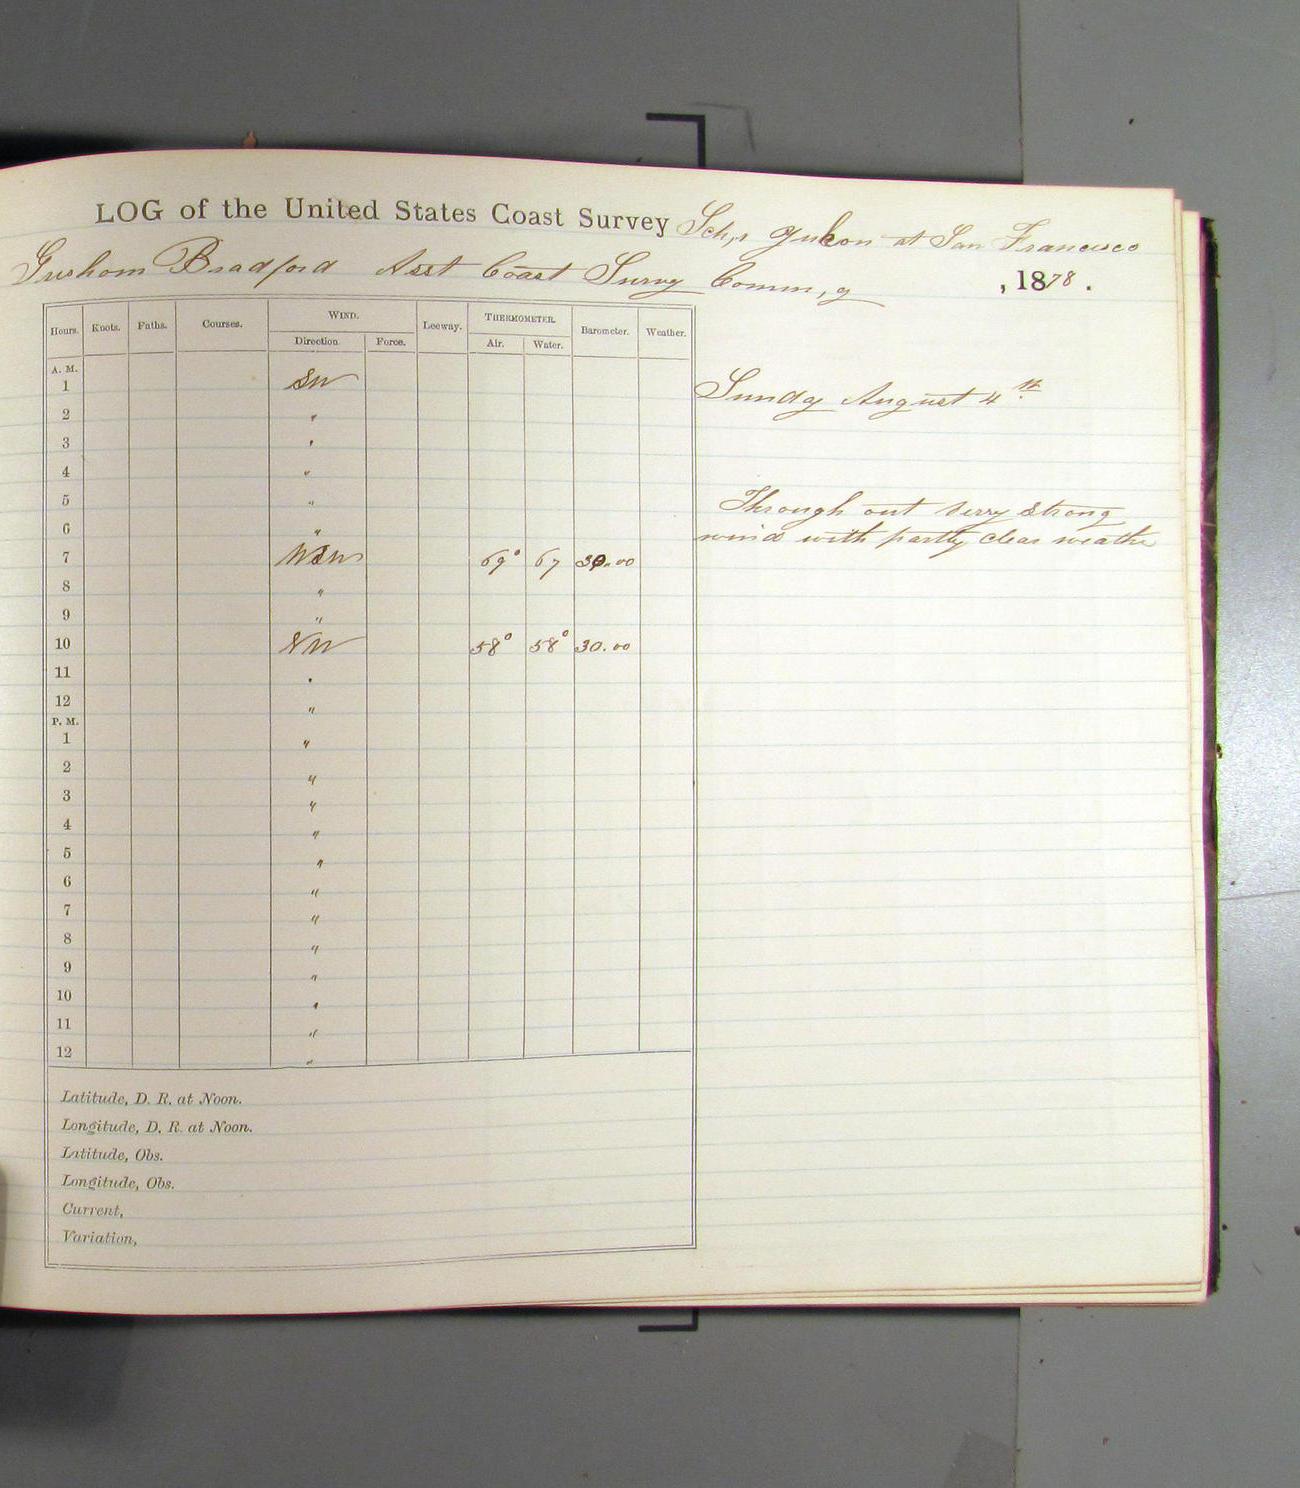 LOG of the United States Coast Survey Schr Yukon at San Francisco
Gershom Bradford Asst Coast Survey Comm,g , 1878 .
Hours. Knots. Faths. Courses. WIND. Leeway. THERMOMETER. Barometer. Weather.
Direction. Force. Air. Water.
A. M.
1 SW
2 "
3 "
4 "
5 "
6 "
7 WSW 69° 67 30.00
8 "
9 "
10 NW 58° 58° 30.00
11 "
12 "
P. M.
1 "
2 "
3 "
4 "
5 "
6 "
7 "
8 "
9 "
10 "
11 "
12 "
Latitude, D. R. at Noon.
Longitude, D. R. at Noon.
Latitude, Obs.
Longitude, Obs.
Current,
Variation,
Sundy August 4th
Through out very strong
wind with partly clear weathe